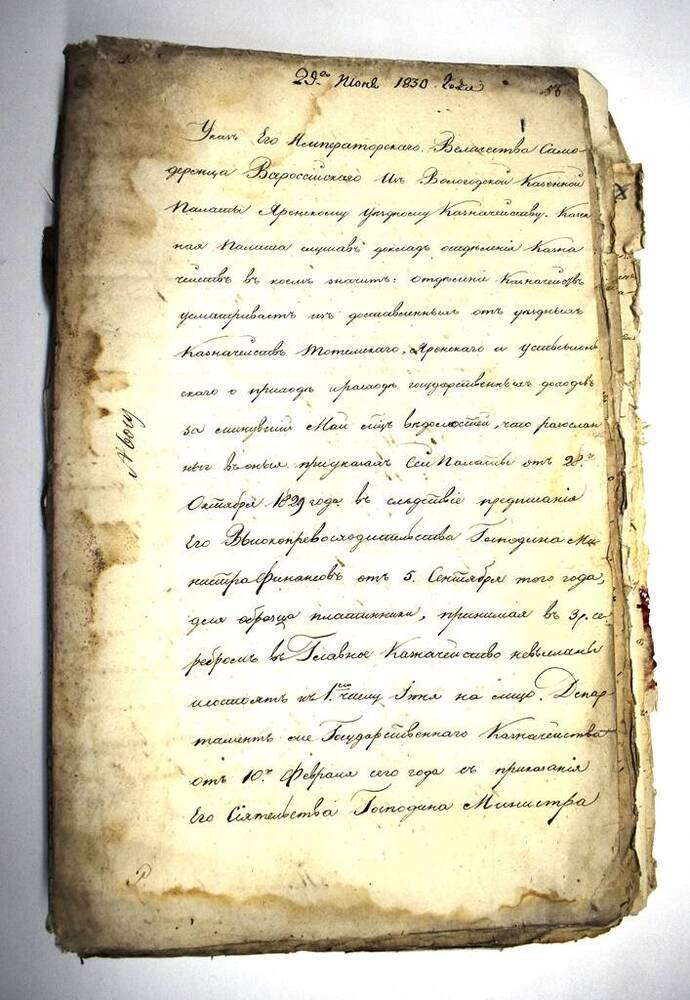 29го Июня 1830 года 56
Указъ Его Императорскаго Величества Само-
держца Всероссiйскаго Изъ Вологодской Казенной
Палаты Яренскому уѣздному Казначейству. Казен
ная Палата слушавъ докладъ отдѣленiя Казна
чействъ въ коемъ значитъ: отдѣленiе Казначействъ
усматриваетъ изъ доставленныхъ отъ уѣздныхъ
Казначействъ Тотемскаго, Яренскаго и Устьсысоль
скаго о приходѣ и расходѣ государственныхъ доходовъ
за минувшiй Май мцъ вѣдомостей, что разослан
ныя въ оныя при указахъ сей Палаты отъ 28го
Октября 1829 года въ слѣдствiе предписанiя
Его Высокопревосходительства Господина Ми
нистра Финансовъ отъ 5. Сентября того года,
для образца платинники, принимая въ 3 р. се
ребромъ въ Главное Казначейство невысланы
исостоятъ къ 1му числу Iюня на лицо. Депар
таментъ же Государственнаго Казначейства
отъ 10го Февраля сего года съ приказанiя
Его Сiятельства Господина Министра